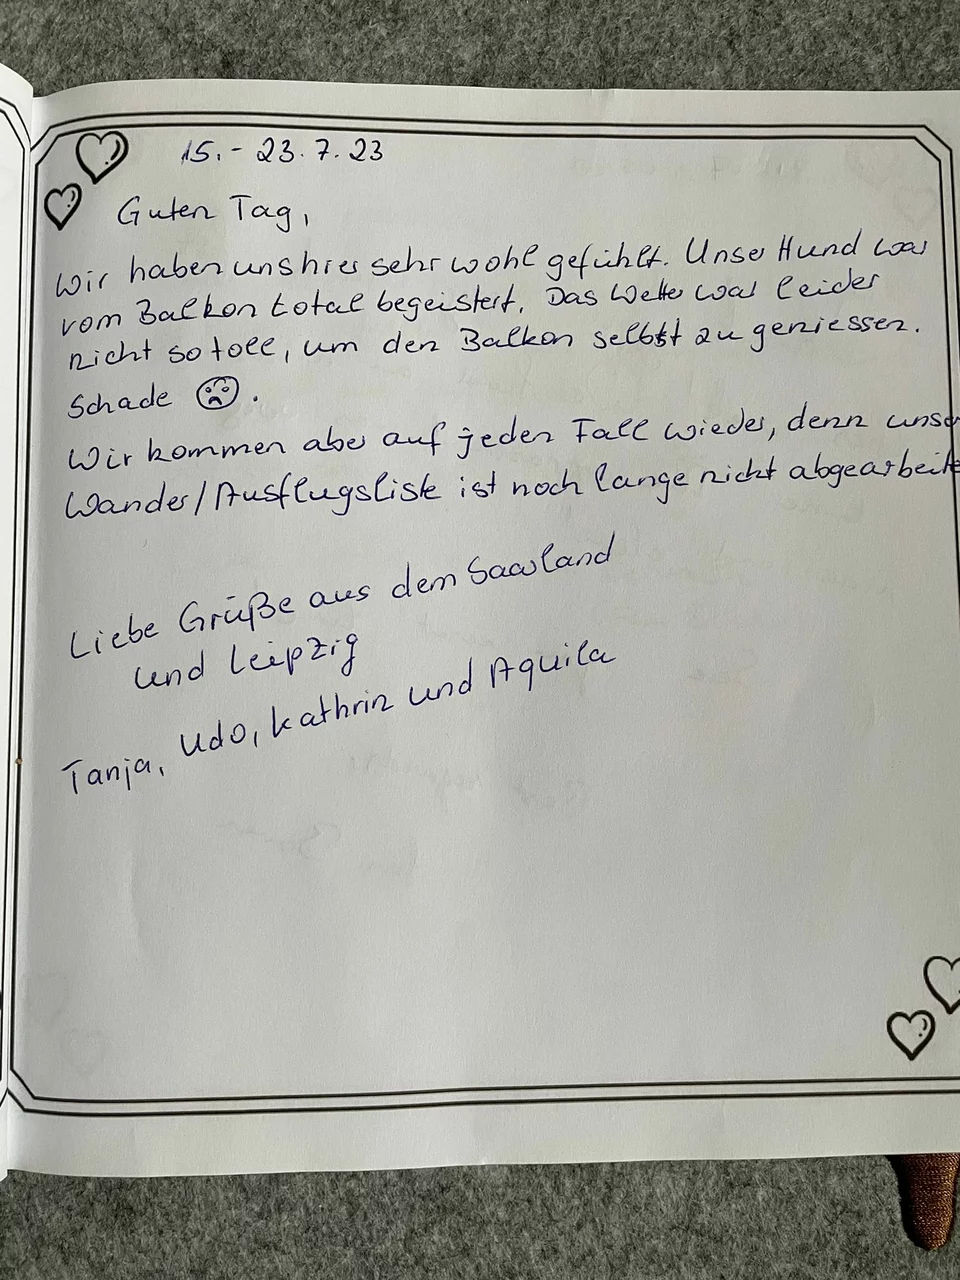 15. - 23. 7. 23
Guten Tag,
Wir haben uns hier sehr wohl gefühlt. Unser Hund war
vom Balkon total begeistert. Das Wetter war leider
nicht so toll, um den Balkon selbst zu geniessen.
Schade ☹.
Wir kommen aber auf jeden Fall wieder, denn unse
Wander/Ausflugsliste ist noch lange nicht abgearbeite
Liebe Grüße aus dem Saarland
und Leipzig
Tanja, Udo, Kathrin und Aquila